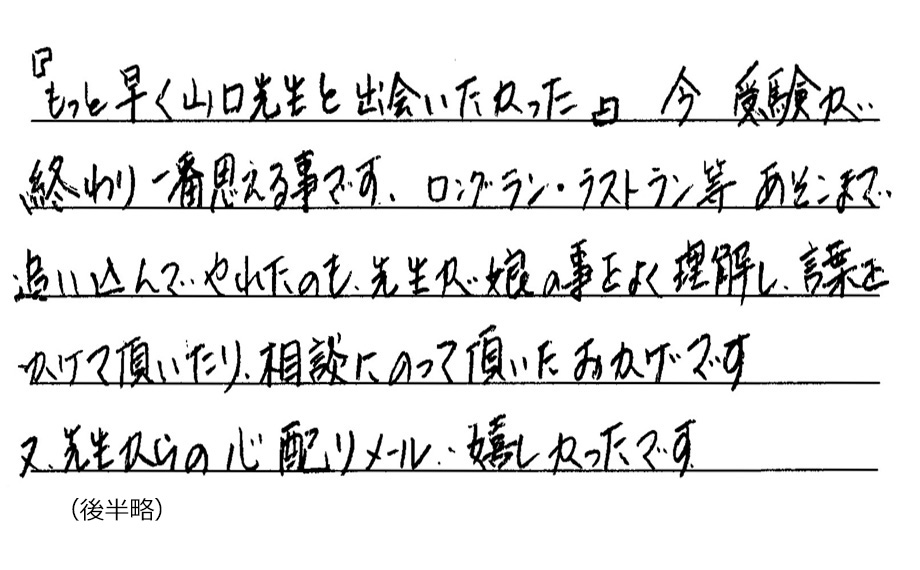 『もっと早く山口先生と出会いたかった』 今 受験が
終わり 一番思える事です、ロングラン・ラストラン等 あそこまで
追い込んで やれたのも、先生が娘の事をよく理解し、言葉を
かけて頂いたり、相談にのって頂いた おかげです
又、先生からの心配りメール‥嬉しかったです
（後半略）